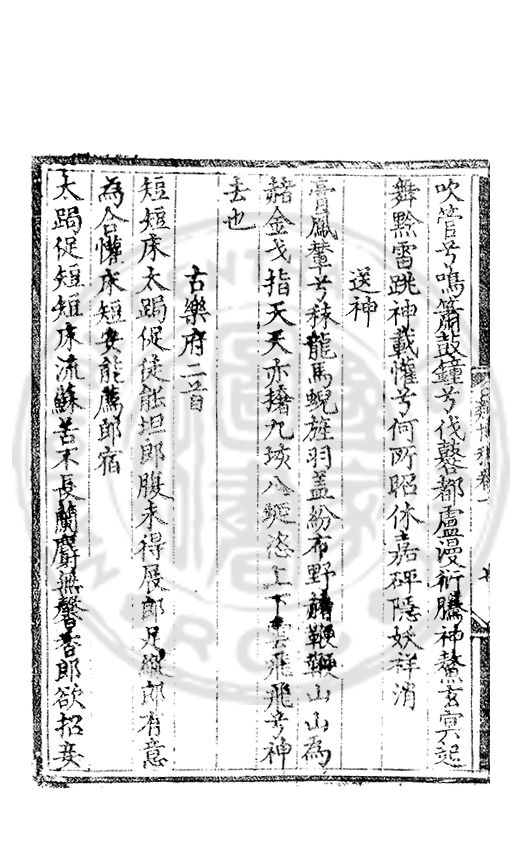 吹管兮鳴簫鼓鐘兮伐鼛都盧漫衍騰神鰲玄冥起
舞黔雷跳神載懽兮何所昭休嘉砰隱妖祥消
送神
膏膩輦兮秣龍馬蜺旌羽蓋紛布野赭鞭鞭山山為
赭金戈指天天亦撦九垓八埏恣上下雲飛飛兮神
去也
古樂府二首
短短床太跼促徒能坦郎腹未得展郎足縱郎有意
為合懽床短安能薦郎宿
太跼促短短床流蘇苦不長蘭麝無馨香郎欲招妾